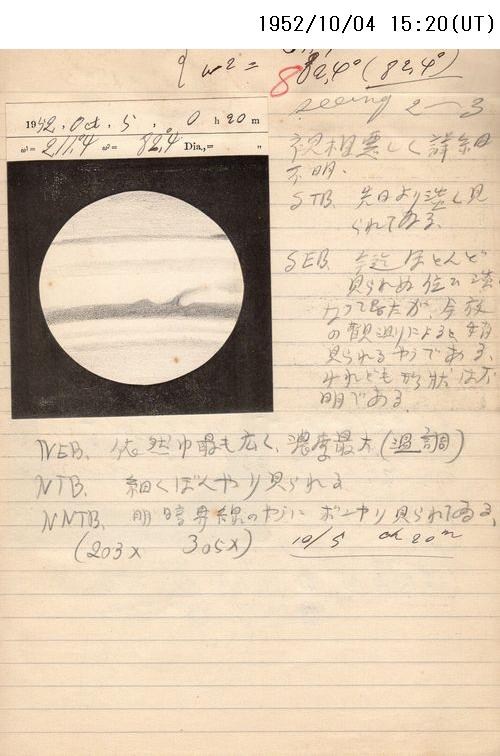 1952/10/04 15:20(UT)
ω² = 82.4° (82.4°)
8
seeing 2〜3
1952. Oct. 5. 0 h 20 m
ω¹= 211.4 ω²= 82.4 Dia.,= "
視相悪しく詳細
不明.
STB. 先日より淡く見
られてゐる.
SEB. 今迄ほとんど
見られぬ位に淡
なって居たが、今夜
の観測によると
見られるやうである.
けれども形状は不
明である.
NEB. 依然巾最も広く、濃度最大(過調)
NTB. 細くぼんやり見られる
NNTB. 明暗界線のやうにボンヤリ見られてゐる.
(203x 305x) 10/5 0h 20m